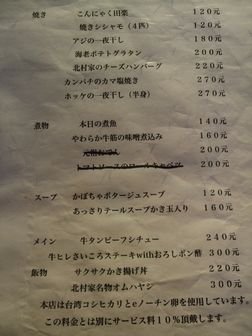 焼き　こんにゃく田楽　120元
焼きシシャモ（4匹）　120元
アジの一夜干し　180元
海老ポテトグラタン　200元
北村家のチーズハンバーグ　220元
カンパチのカマ塩焼き　270元
ホッケの一夜干し（半身）　270元
煮物　本日の煮魚　140元
やわらか牛筋の味噌煮込み　160元
元祖おでん　200元
トマトソースのロールキャベツ　200元
スープ　かぼちゃポタージュスープ　120元
あっさりテールスープかき玉入り　160元
メイン　牛タンビーフシチュー　240元
牛ヒレさいころステーキwithおろしポン酢　300元
飯物　サクサクかき揚げ丼　220元
北村家名物オムハヤシ　300元
本店は台湾コシヒカリとeノーチン卵を使用しています。
この料金とは別にサービス料10％頂戴します。